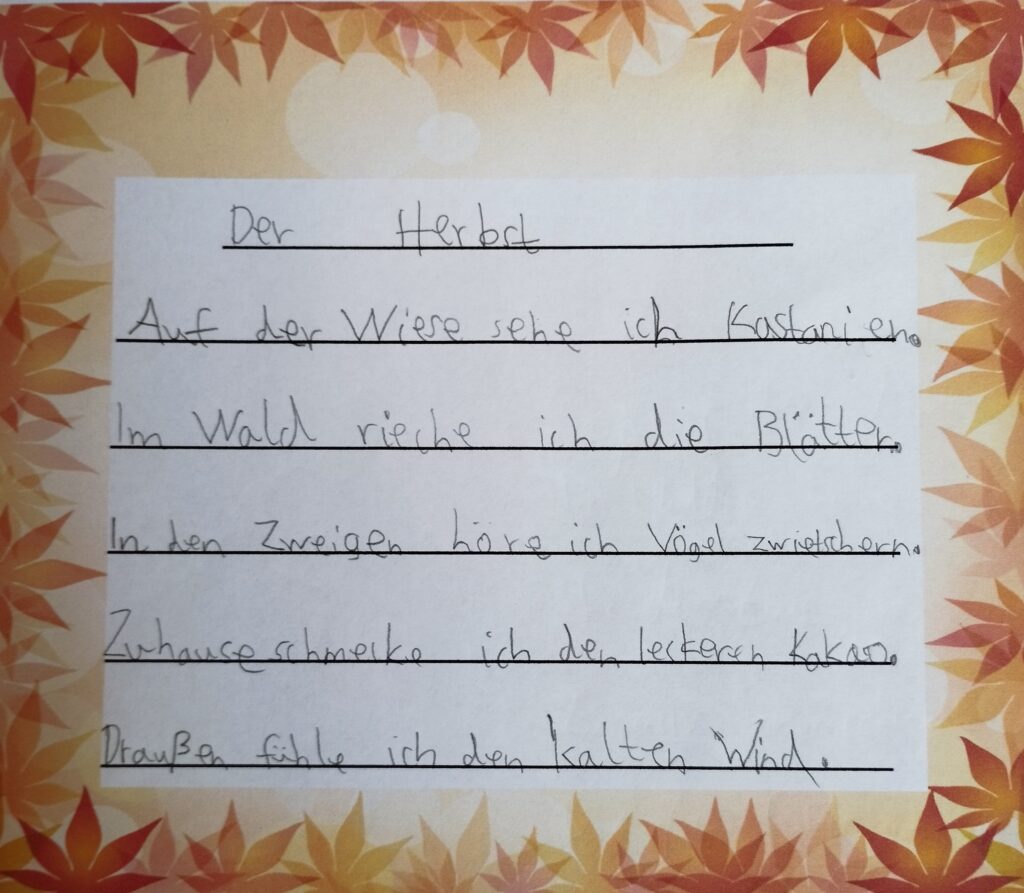 Der Herbst
Auf der Wiese sehe ich Kastanien.
Im Wald rieche ich die Blätter.
In den Zweigen höre ich Vögel zwietschern.
Zuhause schmecke ich den leckeren Kakao.
Draußen fühle ich den kalten Wind.